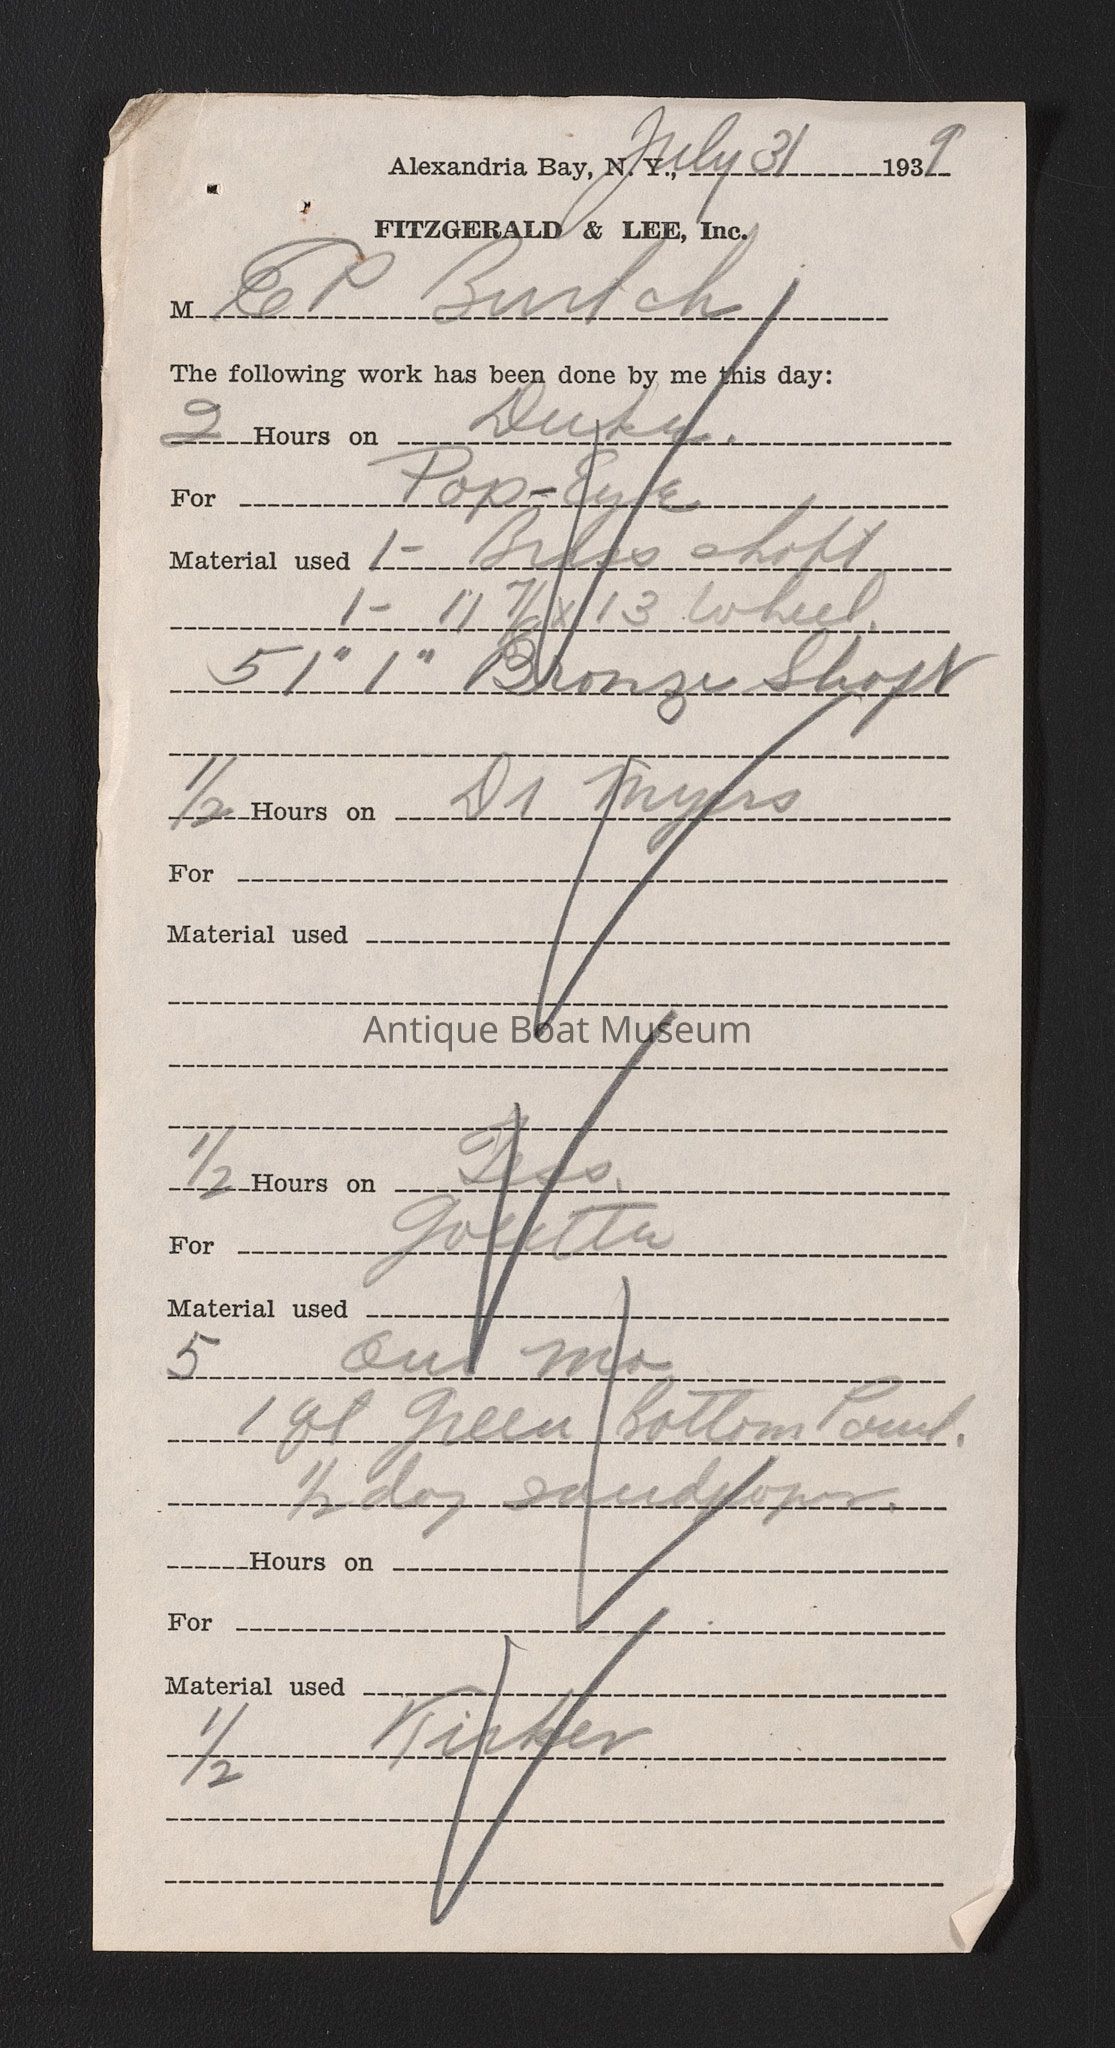 Alexandria Bay, N. Y., July 31 1939
FITZGERALD & LEE, Inc.
M EP Burtch
The following work has been done by me this day:
2 Hours on Duke.
For Pop-Eye
Material used 1- Brass shaft
1- 11 7/8 x 13 Wheel.
51" 1" Bronze Shaft
1/2 Hours on Dr Myers
For
Material used
Antique Boat Museum
1/2 Hours on Tess.
For
Material used
5 Our Mo
1 qt Green Bottom Paint.
1/2 doz sandpaper.
Hours on
For
Material used
1/2